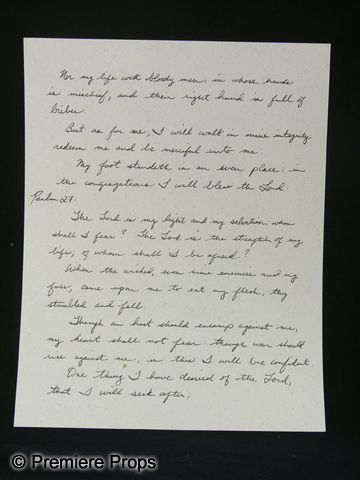 Nor my life with bloody men; in whose hands
is mischief, and their right hand is full of
bribes.
But as for me, I will walk in mine integrity;
redeem me and be merciful unto me.
My foot standeth in an even place: in
the congregations I will bless the Lord
Psalm 27:
The Lord is my light and my salvation: whom
shall I fear? The Lord is the strength of my
life; of whom shall I be afraid?
When the wicked, even mine enemies and my
foes, came upon me to eat my flesh, they
stumbled and fell.
Though an host should encamp against me,
my heart shall not fear: though war should
rise against me, in this I will be confident.
One thing I have desired of the Lord,
that I will seek after;
© Premiere Props